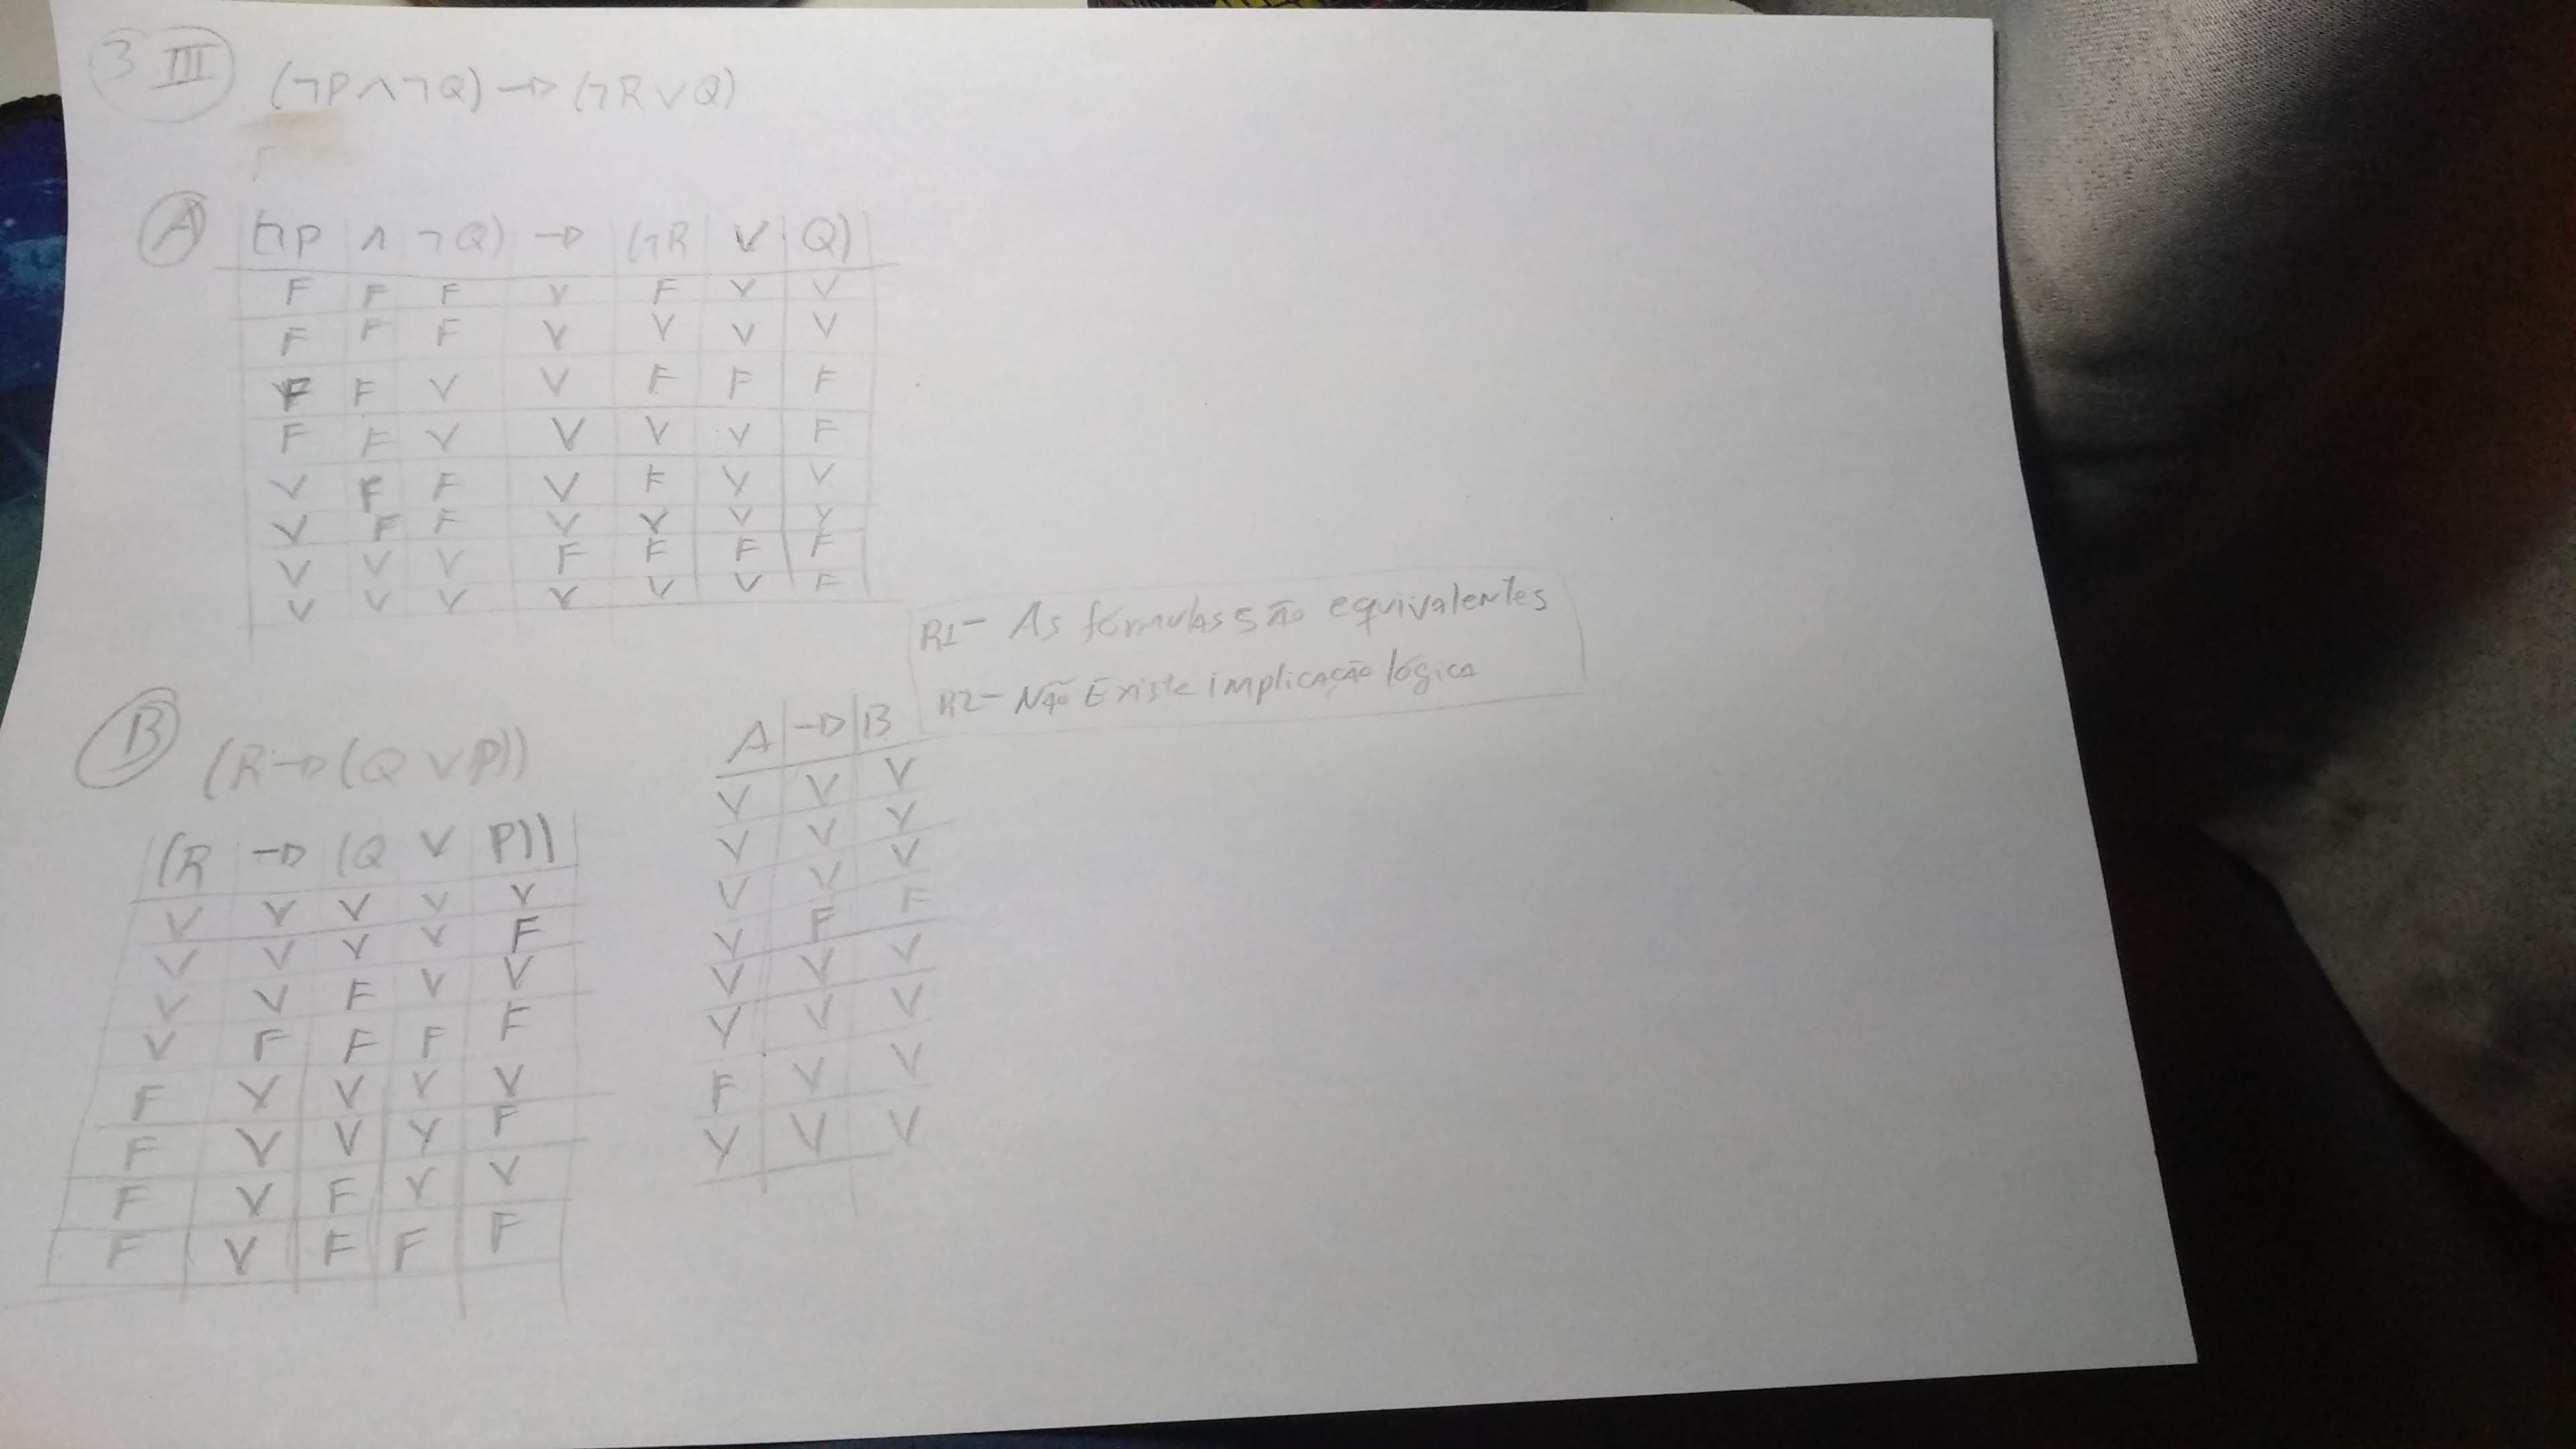 3 III
(¬P∧¬Q)→(¬R∨Q)
A
(¬P ∧ ¬Q) → (¬R ∨ Q)
F F F V F V V
F F F V V V V
F F V V F F F
F F V V V V F
V F F V F V V
V F F V V V V
V V V F F F F
V V V V V V F
R1- As fórmulas são equivalentes
R2- Não Existe implicação lógica
B
(R→(Q∨P))
(R → (Q ∨ P))
V V V V V
V V V V F
V V F V V
V F F F F
F V V V V
F V V V F
F V F V V
F V F F F
A → B
V V V
V V V
V V V
V F F
V V V
V V V
F V V
V V V